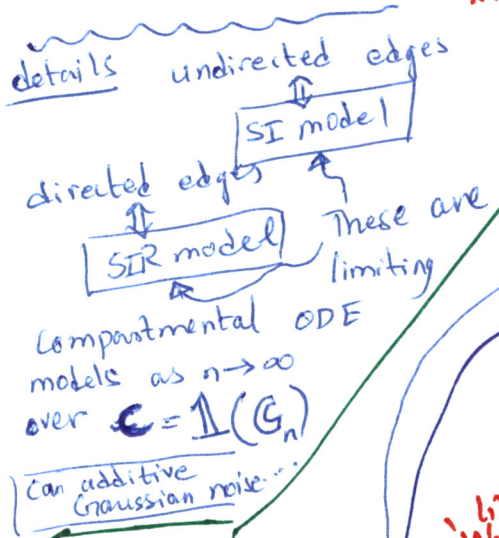 details undirected edges
SI model
directed edges
SIR model
These are
limiting
Compartmental ODE
models as n→∞
over C = 𝟙(𝔾ₙ)
Can additive
Gaussian noise...